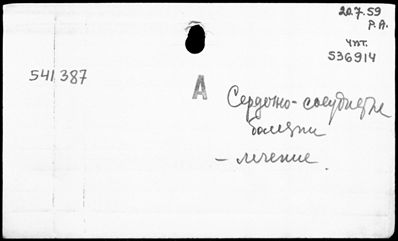 20.7.59
Р.А.
Чит.
536914
541387
А
Сердечно-сосудистые
болезни
– лечение.